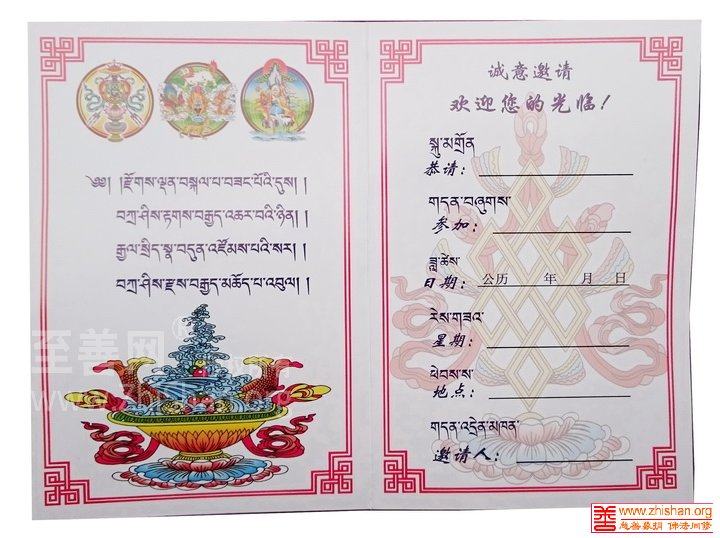 ༄༅། །རྫོགས་ལྡན་བསྐལ་པ་བཟང་པོའི་དུས། །
བཀྲ་ཤིས་རྟགས་བརྒྱད་འཆར་བའི་ཉིན། །
རྒྱལ་སྲིད་སྣ་བདུན་འཛོམས་པའི་སར། །
བཀྲ་ཤིས་རྫས་བརྒྱད་མཆོད་པ་འབུལ། །
至善网®
www.zhishan.org
诚意邀请
欢迎您的光临！
སྐུ་མགྲོན
恭请：
གདན་བཞུགས་
参加：
ཟླ་ཚེས་
日期：公历 年 月 日
རེས་གཟའ་
星期：
ཕེབས་ས་
地点：
གདན་འདྲེན་མཁན་
邀请人：
www.zhishan.org